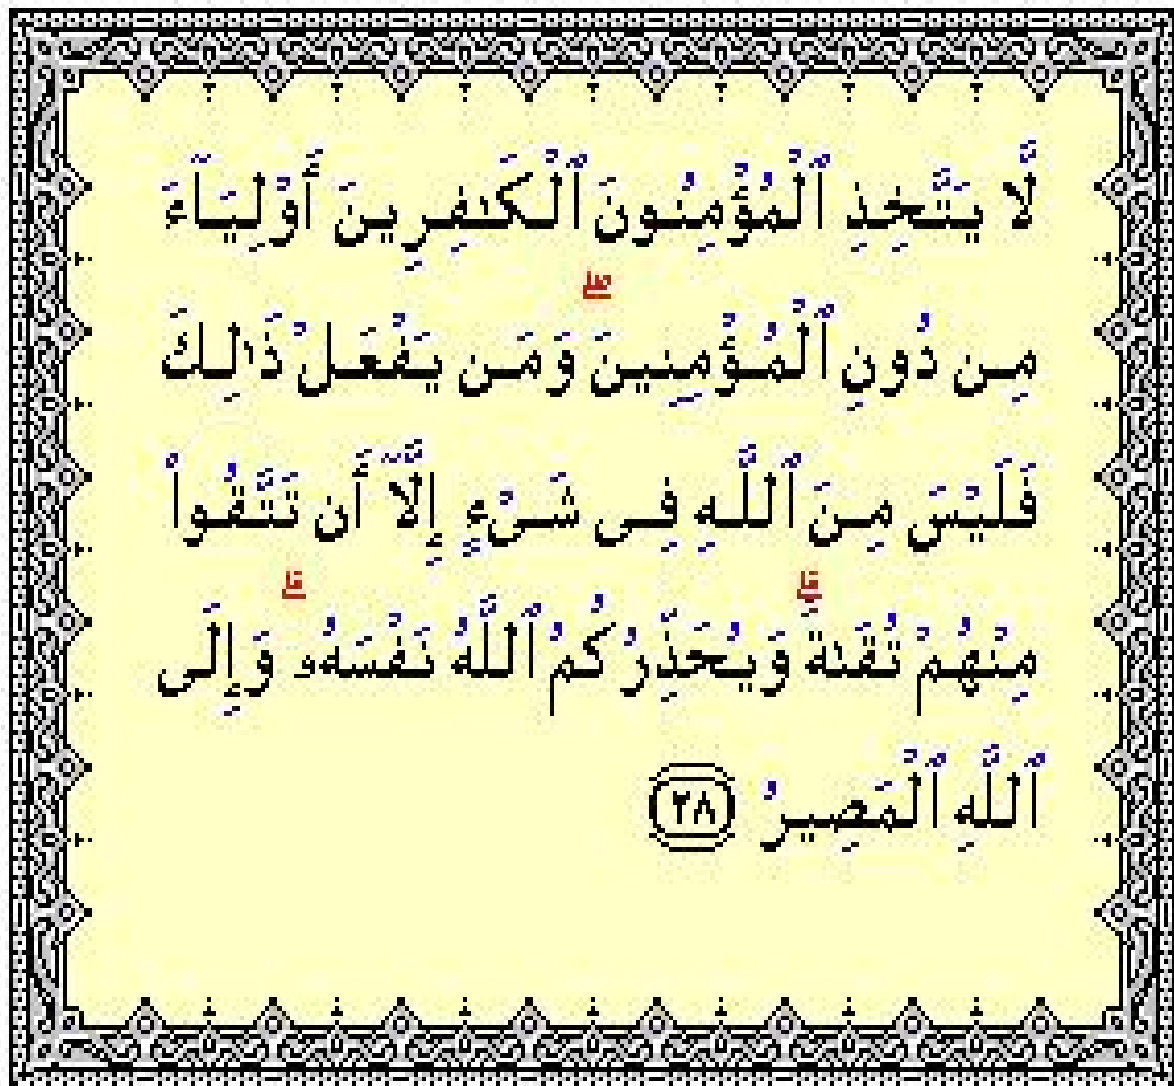 لَّا يَتَّخِذِ ٱلْمُؤْمِنُونَ ٱلْكَـٰفِرِينَ أَوْلِيَآءَ
مِن دُونِ ٱلْمُؤْمِنِينَ ۖ وَمَن يَفْعَلْ ذَٰلِكَ
فَلَيْسَ مِنَ ٱللَّهِ فِى شَىْءٍ إِلَّآ أَن تَتَّقُوا۟
مِنْهُمْ تُقَىٰةً ۗ وَيُحَذِّرُكُمُ ٱللَّهُ نَفْسَهُۥ ۗ وَإِلَى
ٱللَّهِ ٱلْمَصِيرُ ٢٨